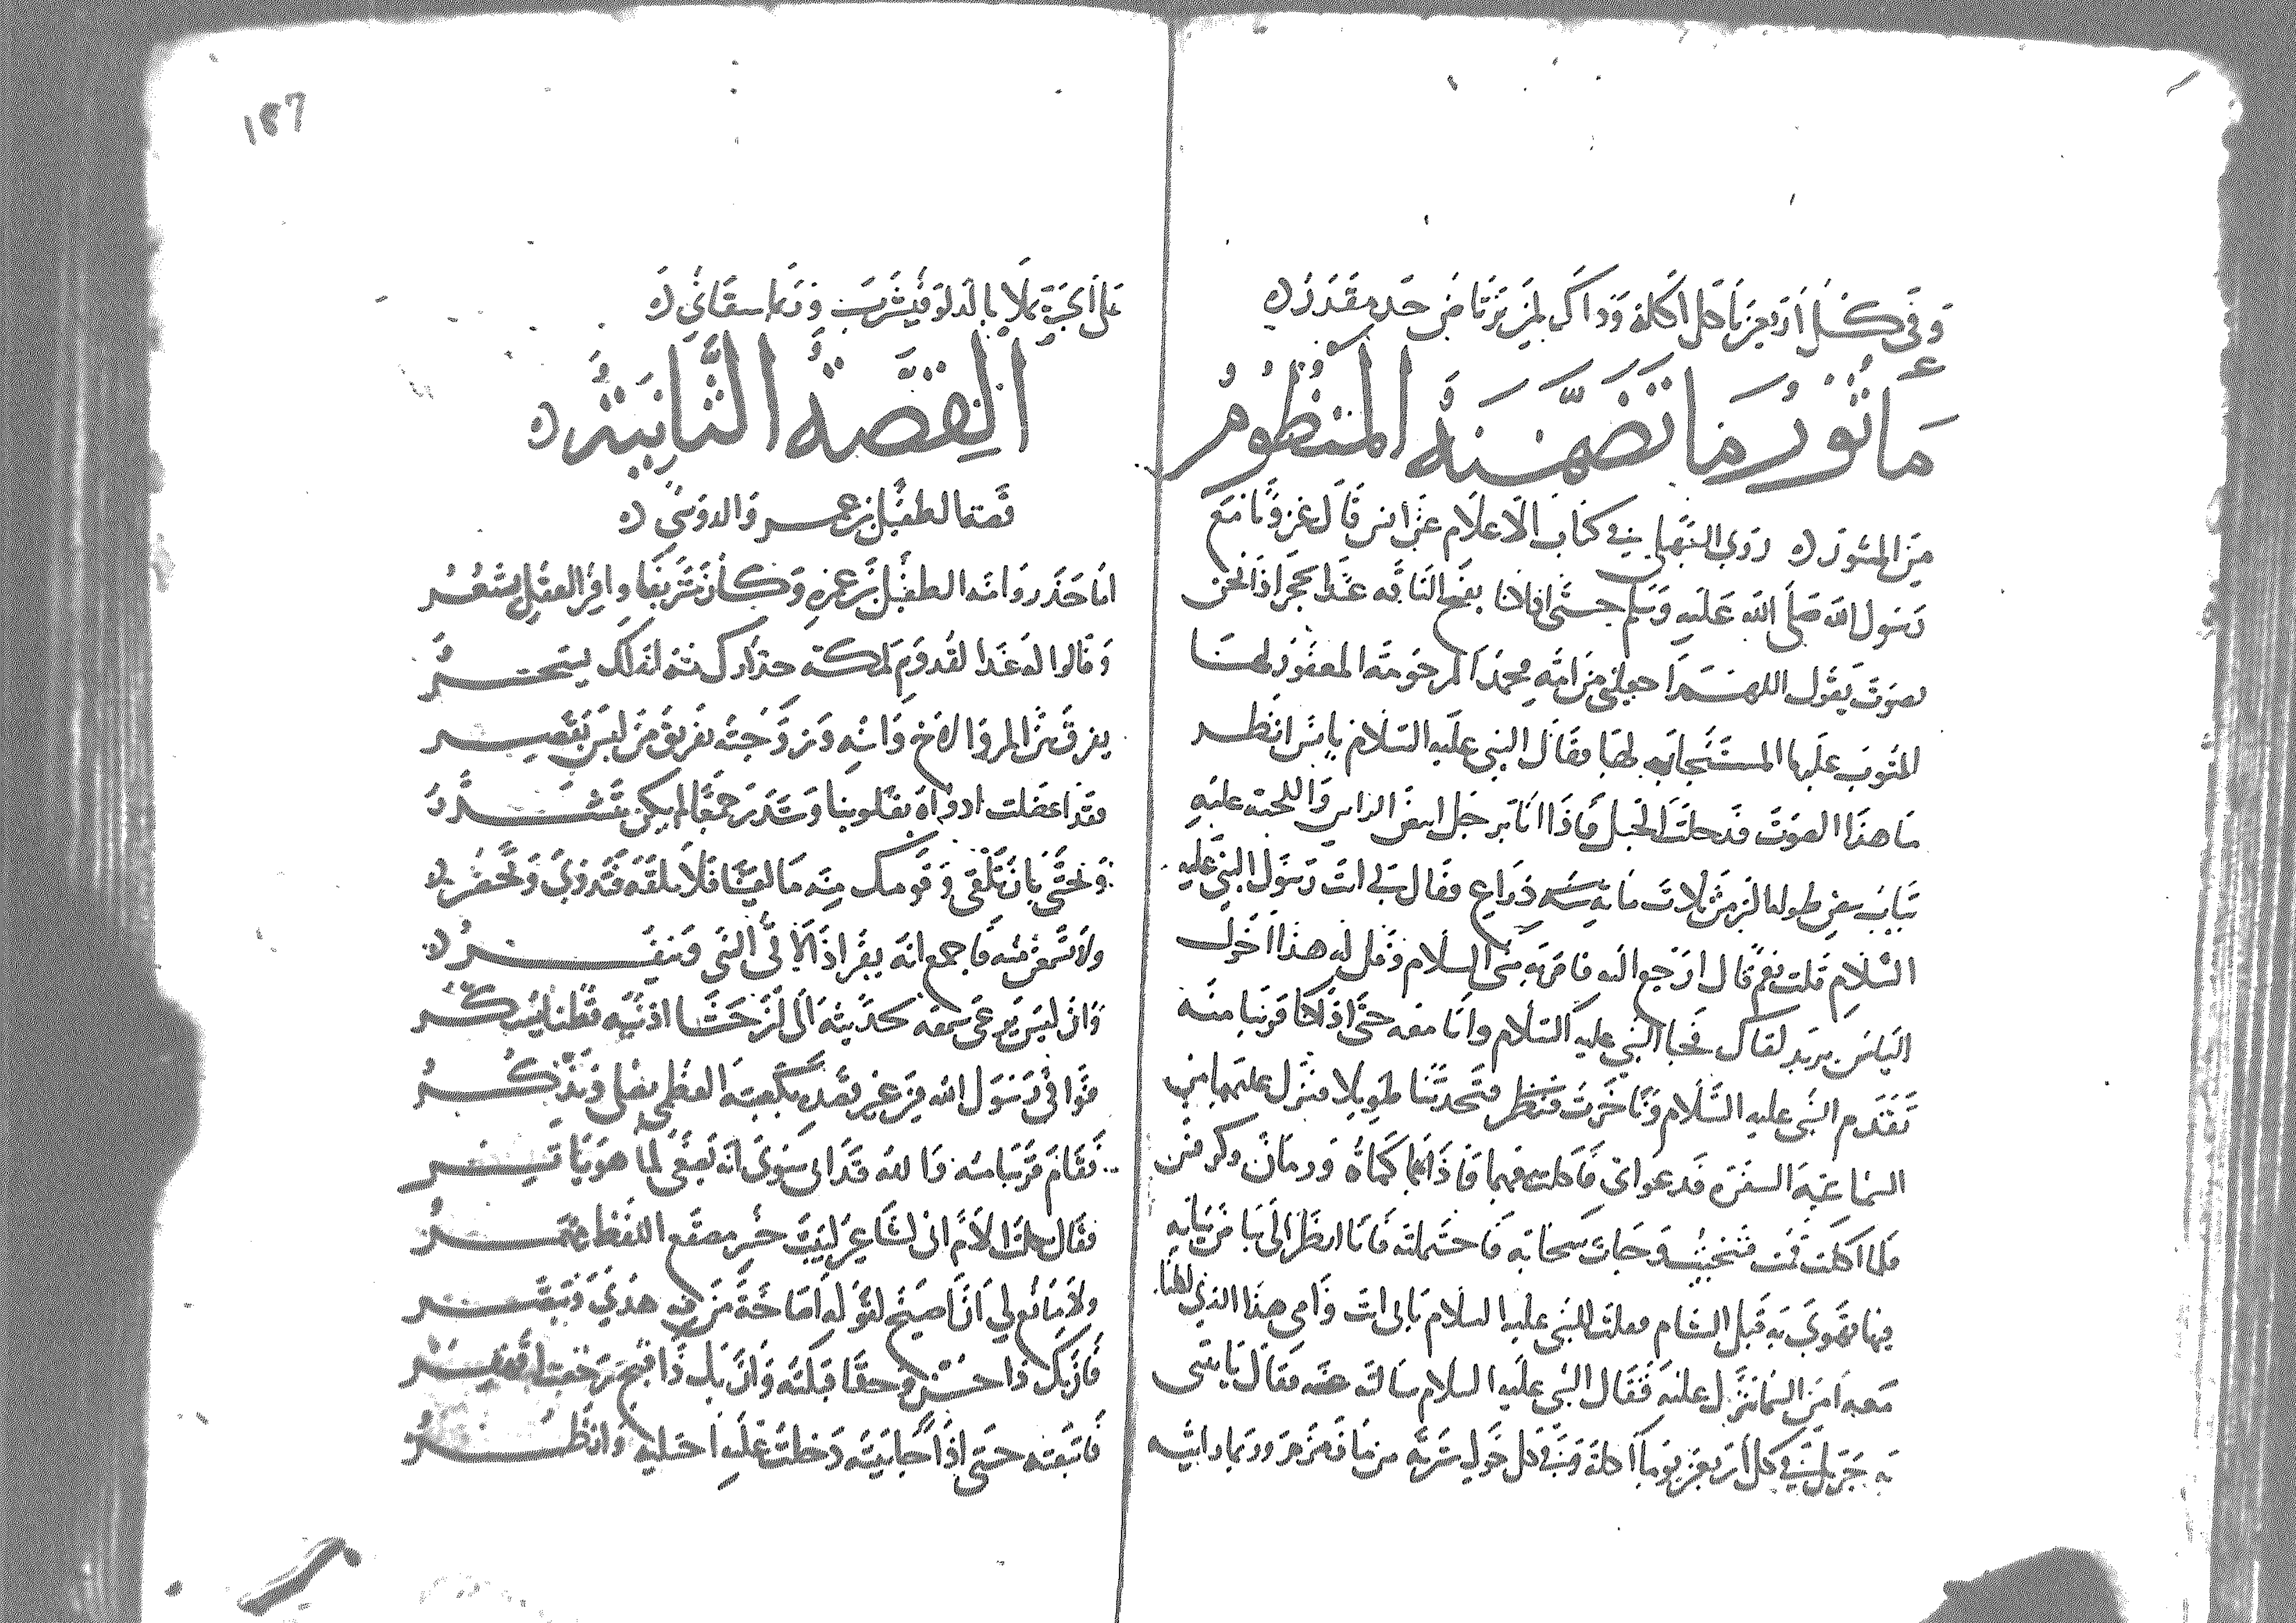 وفي كل أربعين يأكل أكلة وذاك لمن يرتاض حد مقدر
مأثور ما تضمنه المنظوم
من المنثور روى السهيلي في كتاب الاعلام عن انس قال غزونا مع
رسول الله صلى الله عليه وسلم حتى اذا كنا بفج الناقة عند الحجر اذا نحن
بصوت يقول اللهم اجعلني من امة محمد المرحومة المغفور لها
المتوب عليها المستجاب لها فقال النبي عليه السلام يا انس انظر
ما هذا الصوت فدخلت الجبل فاذا انا برجل ابيض الراس واللحية عليه
ثياب بيض طوله اكثر من ثلاث مائة ذراع فقال لي انت رسول النبي عليه
السلام قلت نعم قال ارجع اليه فاقره مني السلام وقل له هذا اخوك
الياس يريد لقاك فجا النبي عليه السلام وانا معه حتى اذا كنا قريبا منه
تقدم النبي عليه السلام وتاخرت فتحدثنا طويلا فنزل عليهما من
السما شبه السفرة فدعواني فاكلت معهما فاذا فيها كماة ورمان وكرفس
فلما اكلت قمت فتنحيت وجات سحابة فاحتملته فانا انظر الى بياض ثيابه
فيها تهوي به قبل الشام فقلت للنبي عليه السلام بابي انت وامي هذا الذي اكلنا
معه امن السما نزل عليه فقال النبي عليه السلام سالته عنه فقال ياتيني
به جبريل في كل اربعين يوما اكلة وفي كل حول شربة من ما زمزم وربما رايته
على الجب يملا بالدلو فيشرب وربما سقاني
القصة الثانية
قصة الطفيل بن عمرو الدوسي
اما حذروا منه الطفيل بن عمره وكان شريفا وافر العقل يشعر
وقالوا له غدا لقدوم لمكة حذارك منه انه لك يسحر
يفرق بين المرو الاخ وابنه وزوجته تفريق من ليس يقصر
فقد اعضلت ادواه بقلوبنا وشتت جمعا لم يكن
ونخشى بان تلقى وقومك منه ما لقينا فلا تلقه
ولا تسمعن منه فاجمع انه يفر اذا لاقى النبي وينفر
وان ليس يوعي سمعه لحديثه الى ان حشا اذنيه قطنا
فوافى رسول الله من غير قصد بكعبته العظمى يصلي ويذكر
فقام قريبا منه والله قد ابى سوى انه يصغي لما هو
فقال ثكلت الام اني لشاعر لبيب مصقع اللفظ
ولا مانع لي ان اصيخ لقوله
فان يك ذا حسن وحقا قبلته وان يك ذا قبح
فاتبعته حتى اذا جا بيته دخلت عليه اجتليه وانظر